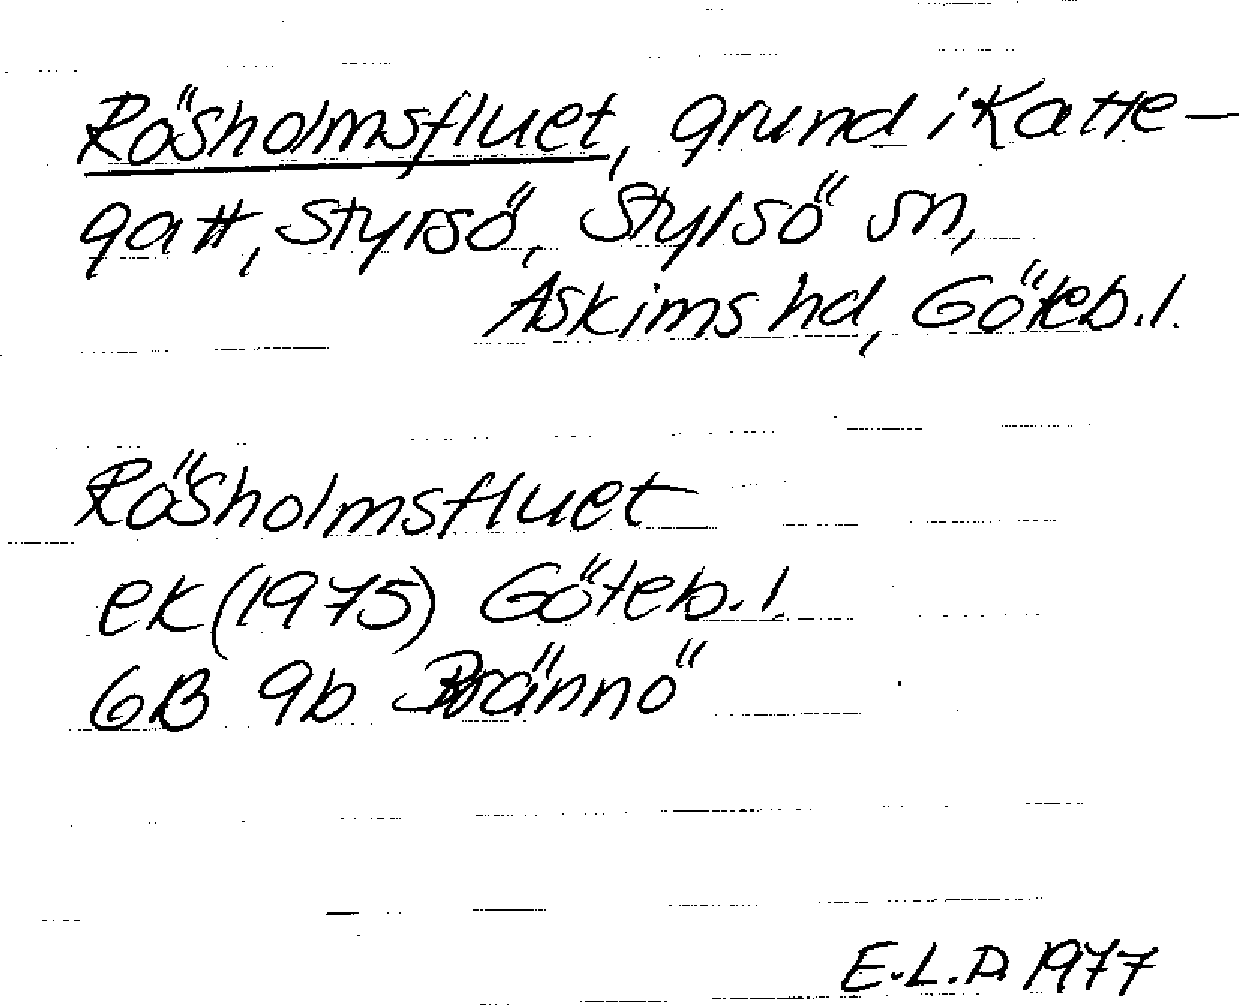 Rösholmsfluet, grund i Katte-
gatt, Styrsö, Stylsö sn,
Askims hd, Göteb.l.
Rösholmsfluet
ek (1975) Göteb.l.
6B 9b Brännö
E.L.D. 1977